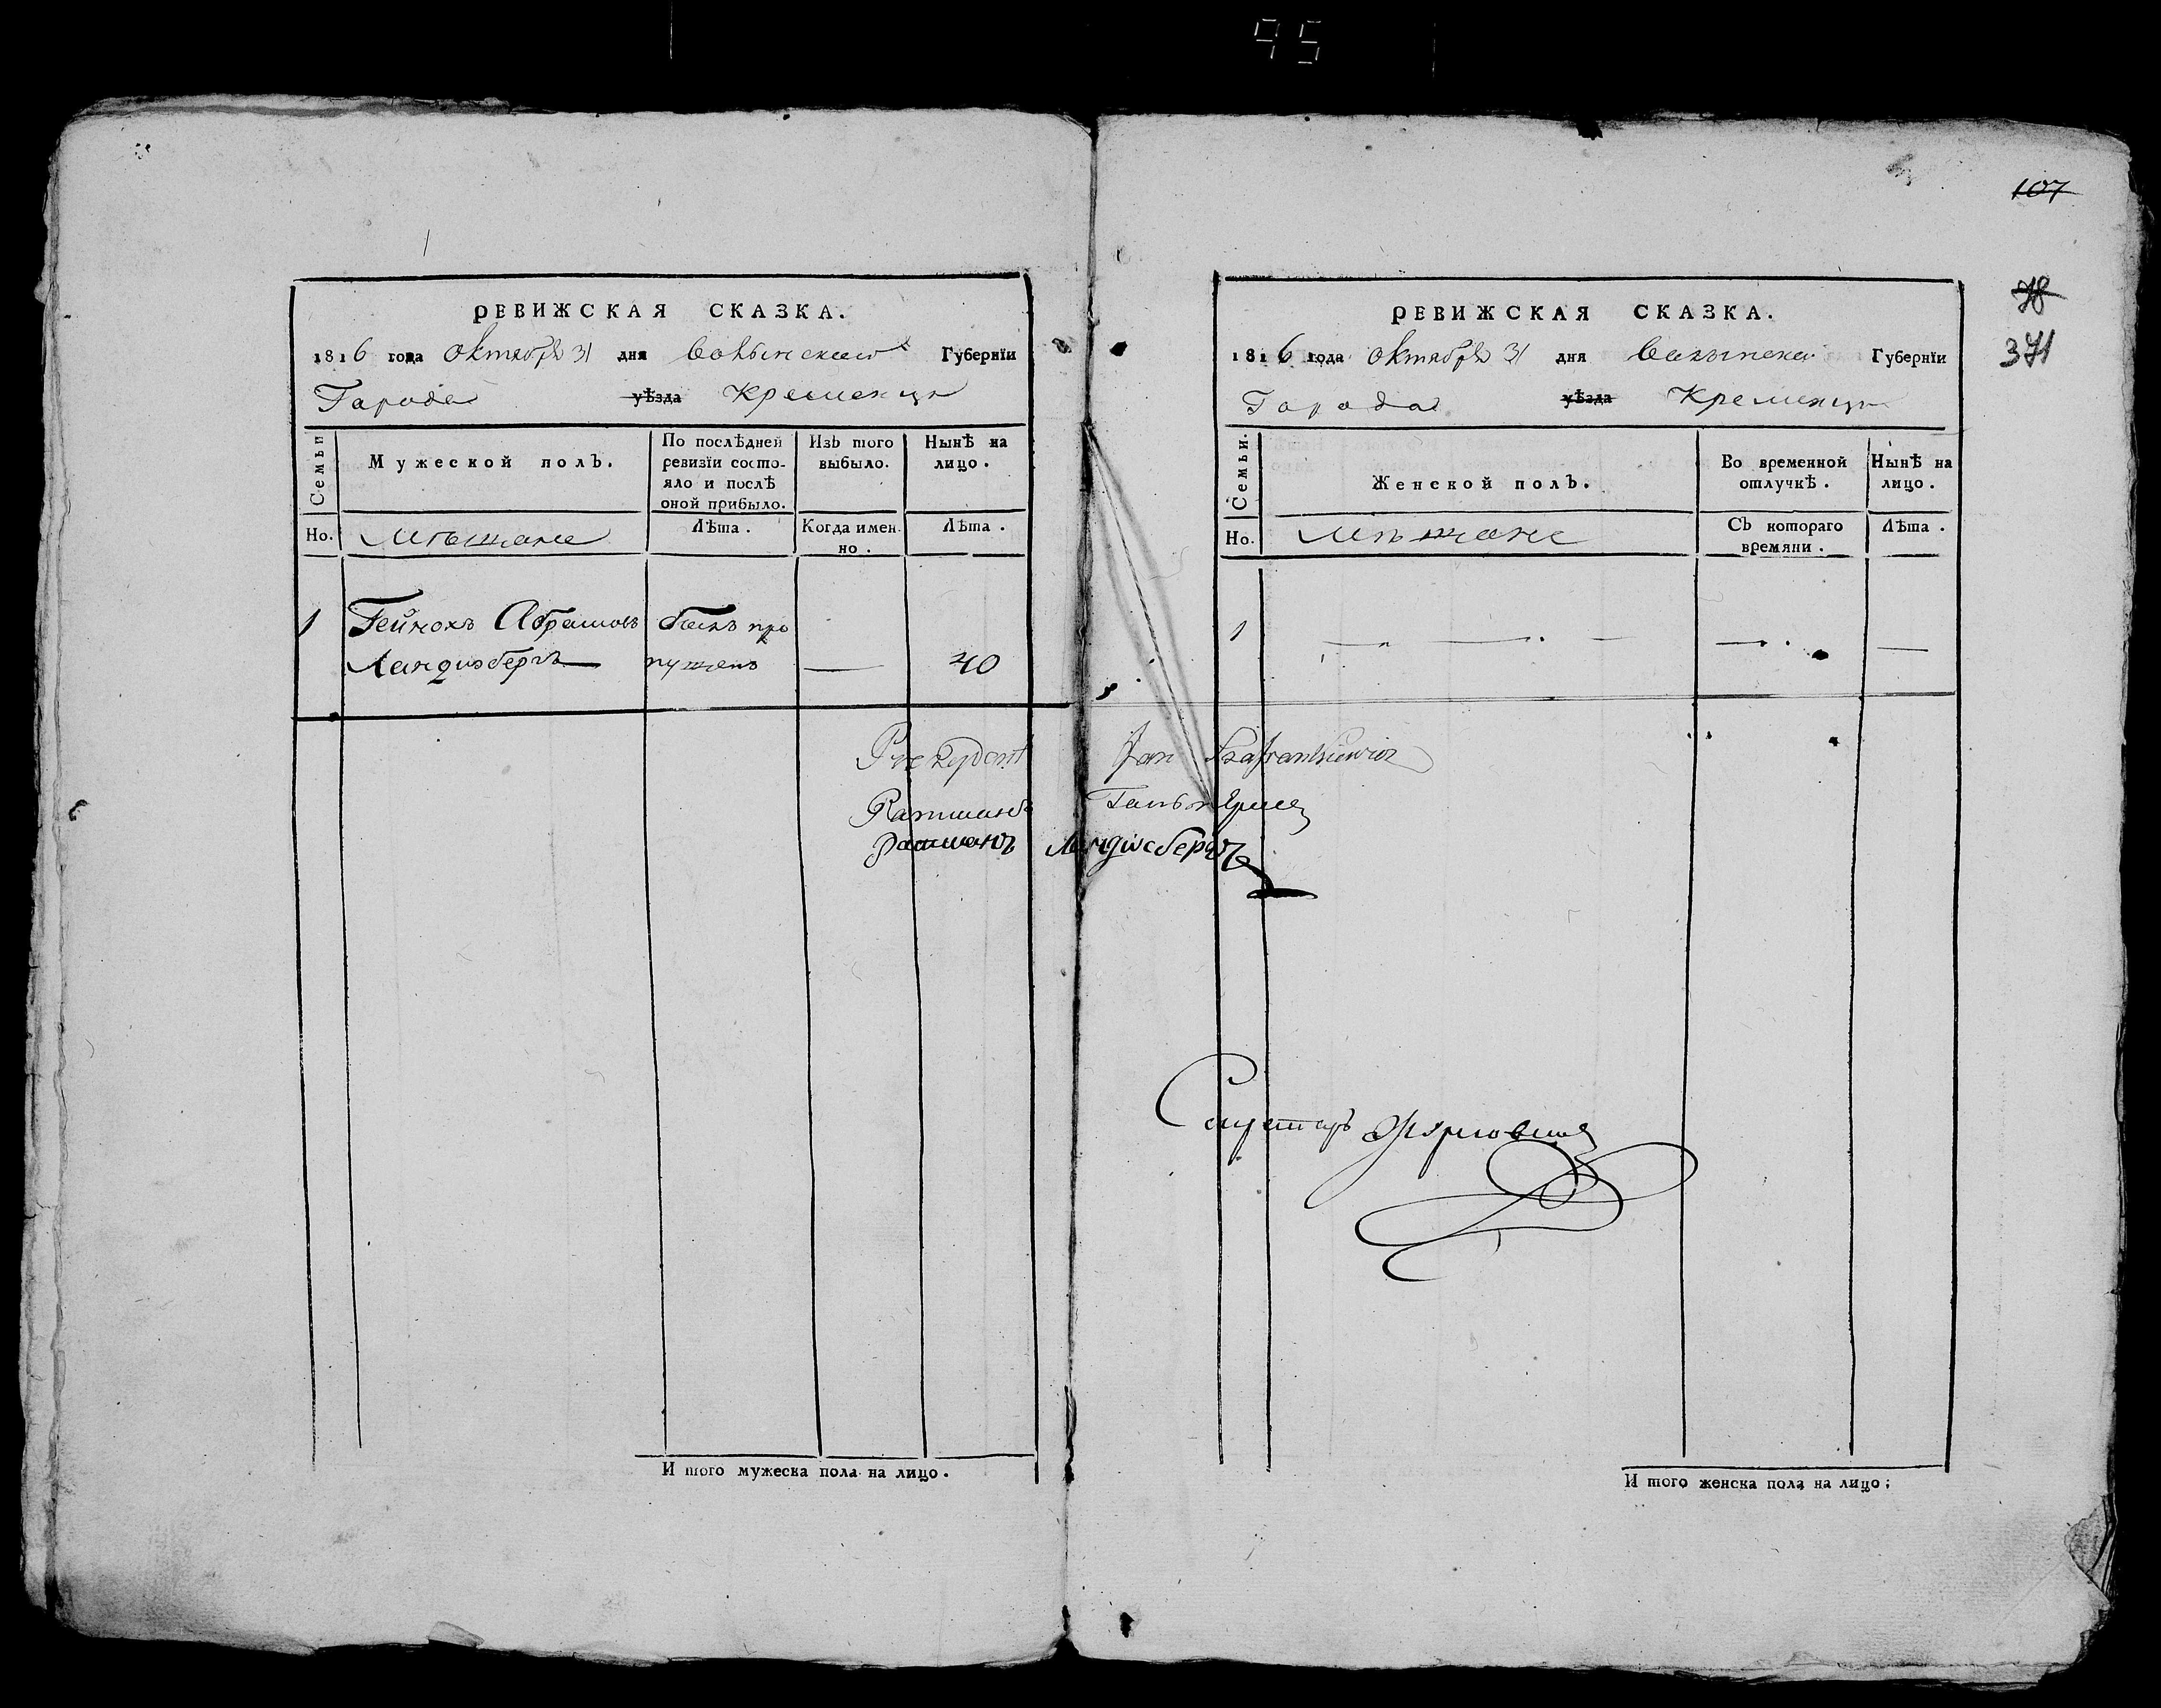 95
107
78
371
РЕВИЖСКАЯ СКАЗКА.
1816 года Октября 31 дня Волынской Губернїи
Города уѣзда Кременца
Семьи
Мужеской полъ.
По послѣдней ревизїи состо-
яло и послѣ
оной прибыло.
Изъ того
выбыло.
Нынѣ на
лицо.
Но. Мѣщане
Лѣта.
Когда имен-
но.
Лѣта.
1 Гейнохъ Абрамовъ былъ про
Ландизбергъ пущенъ — 40
И того мужеска пола на лицо.
РЕВИЖСКАЯ СКАЗКА.
1816 года Октября 31 дня Волынской Губернїи
Города уѣзда Кременца
Семьи.
Женской полъ.
Во временной
отлучкѣ.
Нынѣ на
лицо.
Но. Мѣщане
Съ котораго
времяни.
Лѣта.
1 — — — — —
Prezydent Jan Szafrankiewicz
Ратманъ
Ратманъ Ландисбергъ
И того женска пола на лицо;